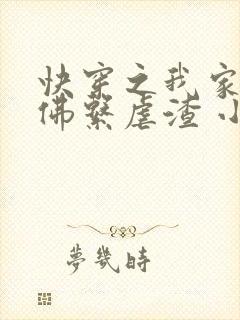 快穿之我家
佛繫虐渣小
夢幾時